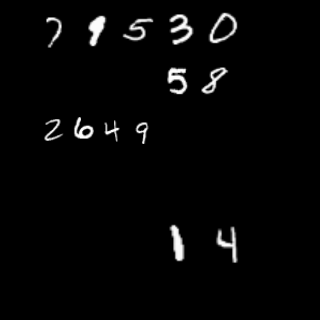 79530
58
2649
14